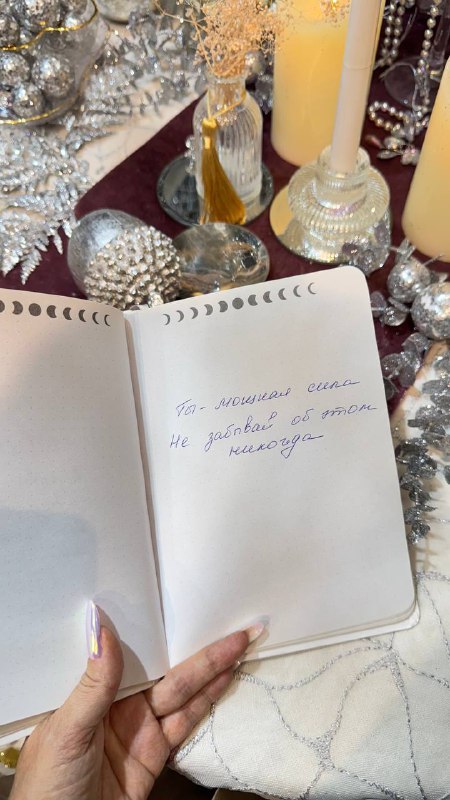 Ты - мощная сила
Не забывай об этом
никогда